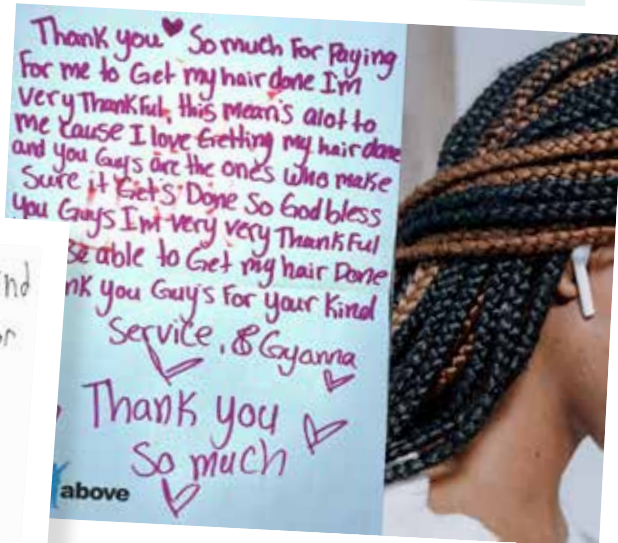 Thank you So much For Paying
For me to Get my hair done I'm
very Thankful, this mean's alot to
me cause I love Getting my hair done
and you Guys are the ones who make
Sure it Get's Done So God bless
you Guys I'm very very Thankful
be able to Get my hair Done
nk you Guy's For your Kind
Service, & Gyanna
Thank you
So much
above
nd
or